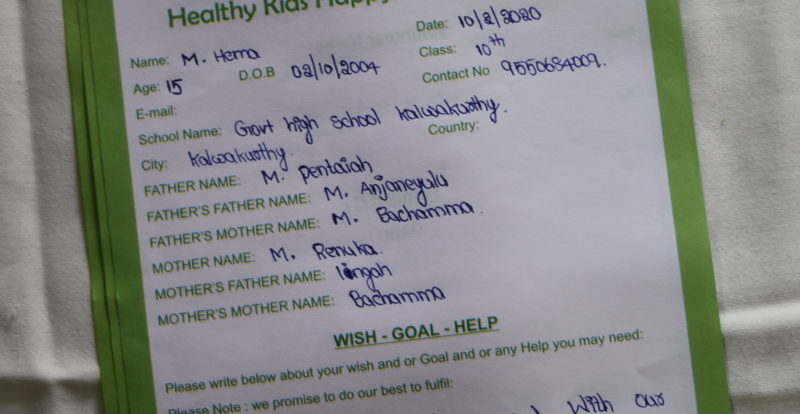 Healthy Kids Happy
Date: 10/2/2020
Name: M. Hema
Class: 10th
Age: 15 D.O.B 02/10/2004
Contact No 9550684009.
E-mail:
School Name: Govt high school kalwakurthy.
City: kalwakurthy. Country:
FATHER NAME: M. pentaiah
FATHER'S FATHER NAME: M. Anjaneyulu
FATHER'S MOTHER NAME: M. Bachamma.
MOTHER NAME: M. Renuka.
MOTHER'S FATHER NAME: lingah
MOTHER'S MOTHER NAME: Bachamma
WISH - GOAL - HELP
Please write below about your wish and or Goal and or any Help you may need:
Please Note : we promise to do our best to fulfil:
With our